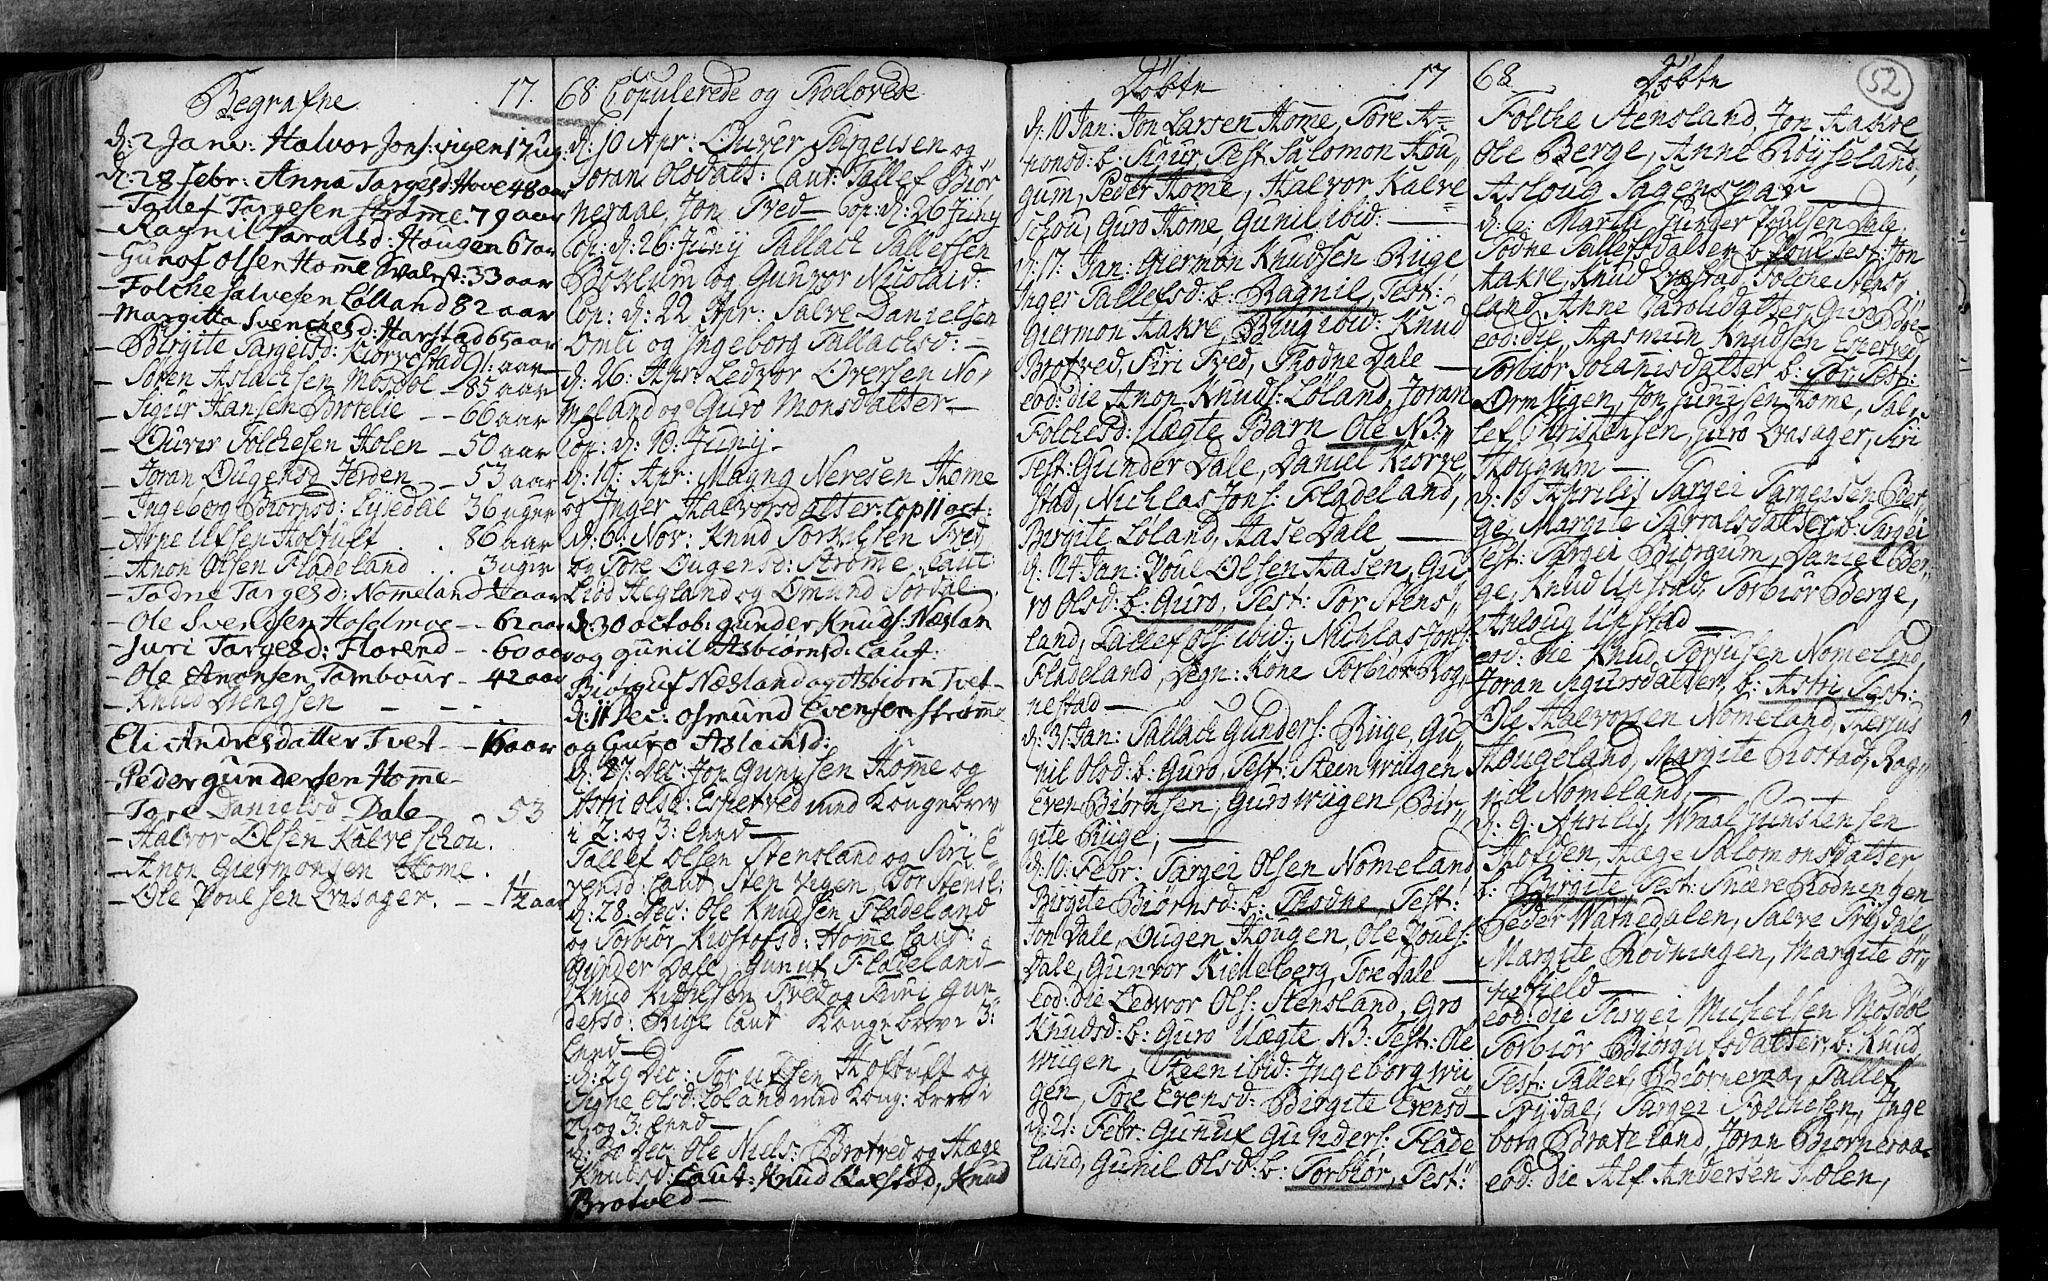 Begrafne 17
d: 2 Janv: Halvor Jons: vigen 17 ug:
d: 28 Febr: Anna Targesd: Hove 48 aar
– Tallef Targesen Strømme 79 aar
– Ragnil Taralsd: Hougen 67 aar
– Gunof Olsen Homme Kvalest: 33 aar
– Folche Salvesen Lølland 82 aar
– Margitta Svenchesd: Harstad 65 aar
– Birgite Targeisd: Kiørvestad 91: aar
– Søren Aslachsen Mosdøl – 85 aar
– Sigur Hansen Brotelie – – 66 aar
– Ouver Folchesen Holen – 50 aar
– Joran Ougensd Jerden – 53 aar
– Ingeborg Biornsd: Lysedal 36 uger
– Arne Ulfsen Hoftuft . 86 aar
– Anon Olsen Fladeland . . 3 uger
– Tadne Targesd: Nomeland aar
– Ole Svensen – – 62 aar
– Juri Targesd: Florend – – 60 aar
– Ole Anonsen Tambour – 42 aar
– Knud – – –
Eli Andresdatter Tvet – – 16 aar
– Peder Gundersen Homme –
– Tore Danielsd Dale 53
– Halvor Olsen Kalveschou.
– Anon Giermonsen Home.
– Ole Poulsen Lrasager. – – 1½ aar
68 Copulerede og Troelovede
d: 10 Apr: Ouver Targeisen og
Joran Olsdatt: Caut: Tallef Biør
neraae, Jon Tved – Cop: d: 26 Juny
Cop: d: 26 Junij Tallach Tallefsen
og Gunvor Nicolaid:
Cop: d: 22 Apr: Salve Danielsen
Omli og Ingeborg Tallachsd: –
d: 26: Apr: Ledvor Oversen No
meland og Guro Monsdatter –
Cop: d: 10: Junij –
d: 10: Apr: Mayng Neresen Home
og Inger Halvorsdatter. Cop 11 oct:
d: 6: Nov: Knud Torkelsen Tved
og Tore Ougensd: Strømme. Caut:
Liød Hegland og Omund Sordal
d: 30 octob: gunder Knuds: Næslan
og gunil Asbiørnsd: Caut:
Biørguf Næsland og Asbiørn Tvet –
d: 11 Dec: osmund Evensen Strømme
og Guro Aslachsd:
d: 27: Dec: Jon Gunisen Homme og
Astri Olsd: Espetved med Kongebrev
i 2: og 3: Leed –
Tallef Olsen Stensland og Siri E
vensd: Caut Sten vigen, Tor Stensl:
d: 28. Dec: Ole Knudsen Fladeland
og Torbiør Kistofsd: Homme Caut:
Gunder Dale, Gunuf Fladeland –
Knud Tved og Juri Gun
dersd: Rige Caut Kongebrev i 3:
Leed –
d: 29 Dec: Tor Ulfsen Hoftuft og
Signe Olsd: Loland med Kong: brev i
2: og 3: Leed –
d: 30 Dec: Ole Niels: Brotved og Hæge
Knudsd: Caut: Knud Løefstad, Knud
Brotved –
Døbte 17
d: 10 Jan: Jon Larsen Home, Tore A=
monsd: b: Sigur Test Salomon Hou„
gum, Peder Home, Halvor Kalve=
schou, Guro Home, Gunil ibid: –
d: 17: Jan: Giermon Knudsen Riige
Inger Tallefsd: b: Ragnil, Test:
Giermon Aakre, Brug ibid: Knud
Brotved, Siri Tved, Thodne Dale –
eod: die Amon Knuds: Loland, Joran
Folchesd: Uægte Barn Ole N3:
Test: Gunder Dale, Daniel Kiorve„
stad, Nichlas Jons: Fladeland,
Birgite Loland, Aase Dale –
d: 24 Jan: Poul Olsen Aasen, Gu
ro Olsd: b: Guro, Test: Tor Stens„
land, Tallef Ols: ibid:, Nichlas Jons:
Fladeland, Degn: Kone Torbior Rog„
nestad –
d: 31 Jan: Tallach Gunders: Riige, Gu„
nil Olsd: b: Guro, Test: Steen Wiigen
Even Biørnsen, Guro Wiigen, Bir„
gite Riige, –
d: 10: Febr: Targei Olsen Nomeland,
Birgite Biørnsd: b: Thodne, Test:
Jon Dale, Ougen Hougen, Ole Pouls:
Dale, Gunvor Kielleberg, Tore Dale –
eod: die Ledvor Ols: Stensland, Gro
Knudsd: b: Guro Uægte N3: Test: Ole
Wiigen, Steen ibid: Ingeborg Wii„
gen, Tore Evensd: Birgite Evensd –
d: 21: Febr: Gunuf Gunders: Flade
land, Gunil Olsd: b: Torbiør, Test:
68 Døbte 52
Folche Stensland, Jon Aakre
Ole Berge, Anne Røysseland,
Aslaug Sagensgar –
d: 6: Martij Gunder Poulsen Dale,
Todne Tallefsdatter b: Poul Test: Jon
Aakre, Knud Lrøstad, Folche Stens„
land, Anne Jacobsdatter, Guro Bi–
eod: die, Aasmun Knudsen Espetved,
Torbiør Johannisdatter b: Tor Test:
Orm Vigen, Jon Gunisen Home, Tal„
lef Christensen, Guro Lrasager, Siri
Hougum –
d: 18 Aprilis Targei Targeisen Ber„
ge, Margite Taralsdatter b: Targei
Test: Targei Biorgum, Daniel Ber„
ge, Knud Upstad, Torbiør Berge,
Anloug Upstad –
eod: die Knud Torjusen Nomeland,
Joran Sigursdatter, b: Astri Test:
Ole Halvorsen Nomeland, Terjus
Hougeland, Margite Rostad, Rag„
nil Nomeland –
d: 9: Aprilis, Wraal Gunstensen
Hofden, Hæge Salomonsdatter
b: Birgite Test: Snære Rodningen
Peder Watnedalen, Salve Trydal,
Margite Rodningen, Margite Ør„
nefield –
eod: die Targei Michelsen Mosdøl
Torbiør Biorgufsdatter, b: Knud,
Test: Tallef Biørneraa, Tallef
Trydal, Targei Folchesen, Inge
borg Brateland, Joran Biørneraa –
eod: die Alf Andersen Holen,